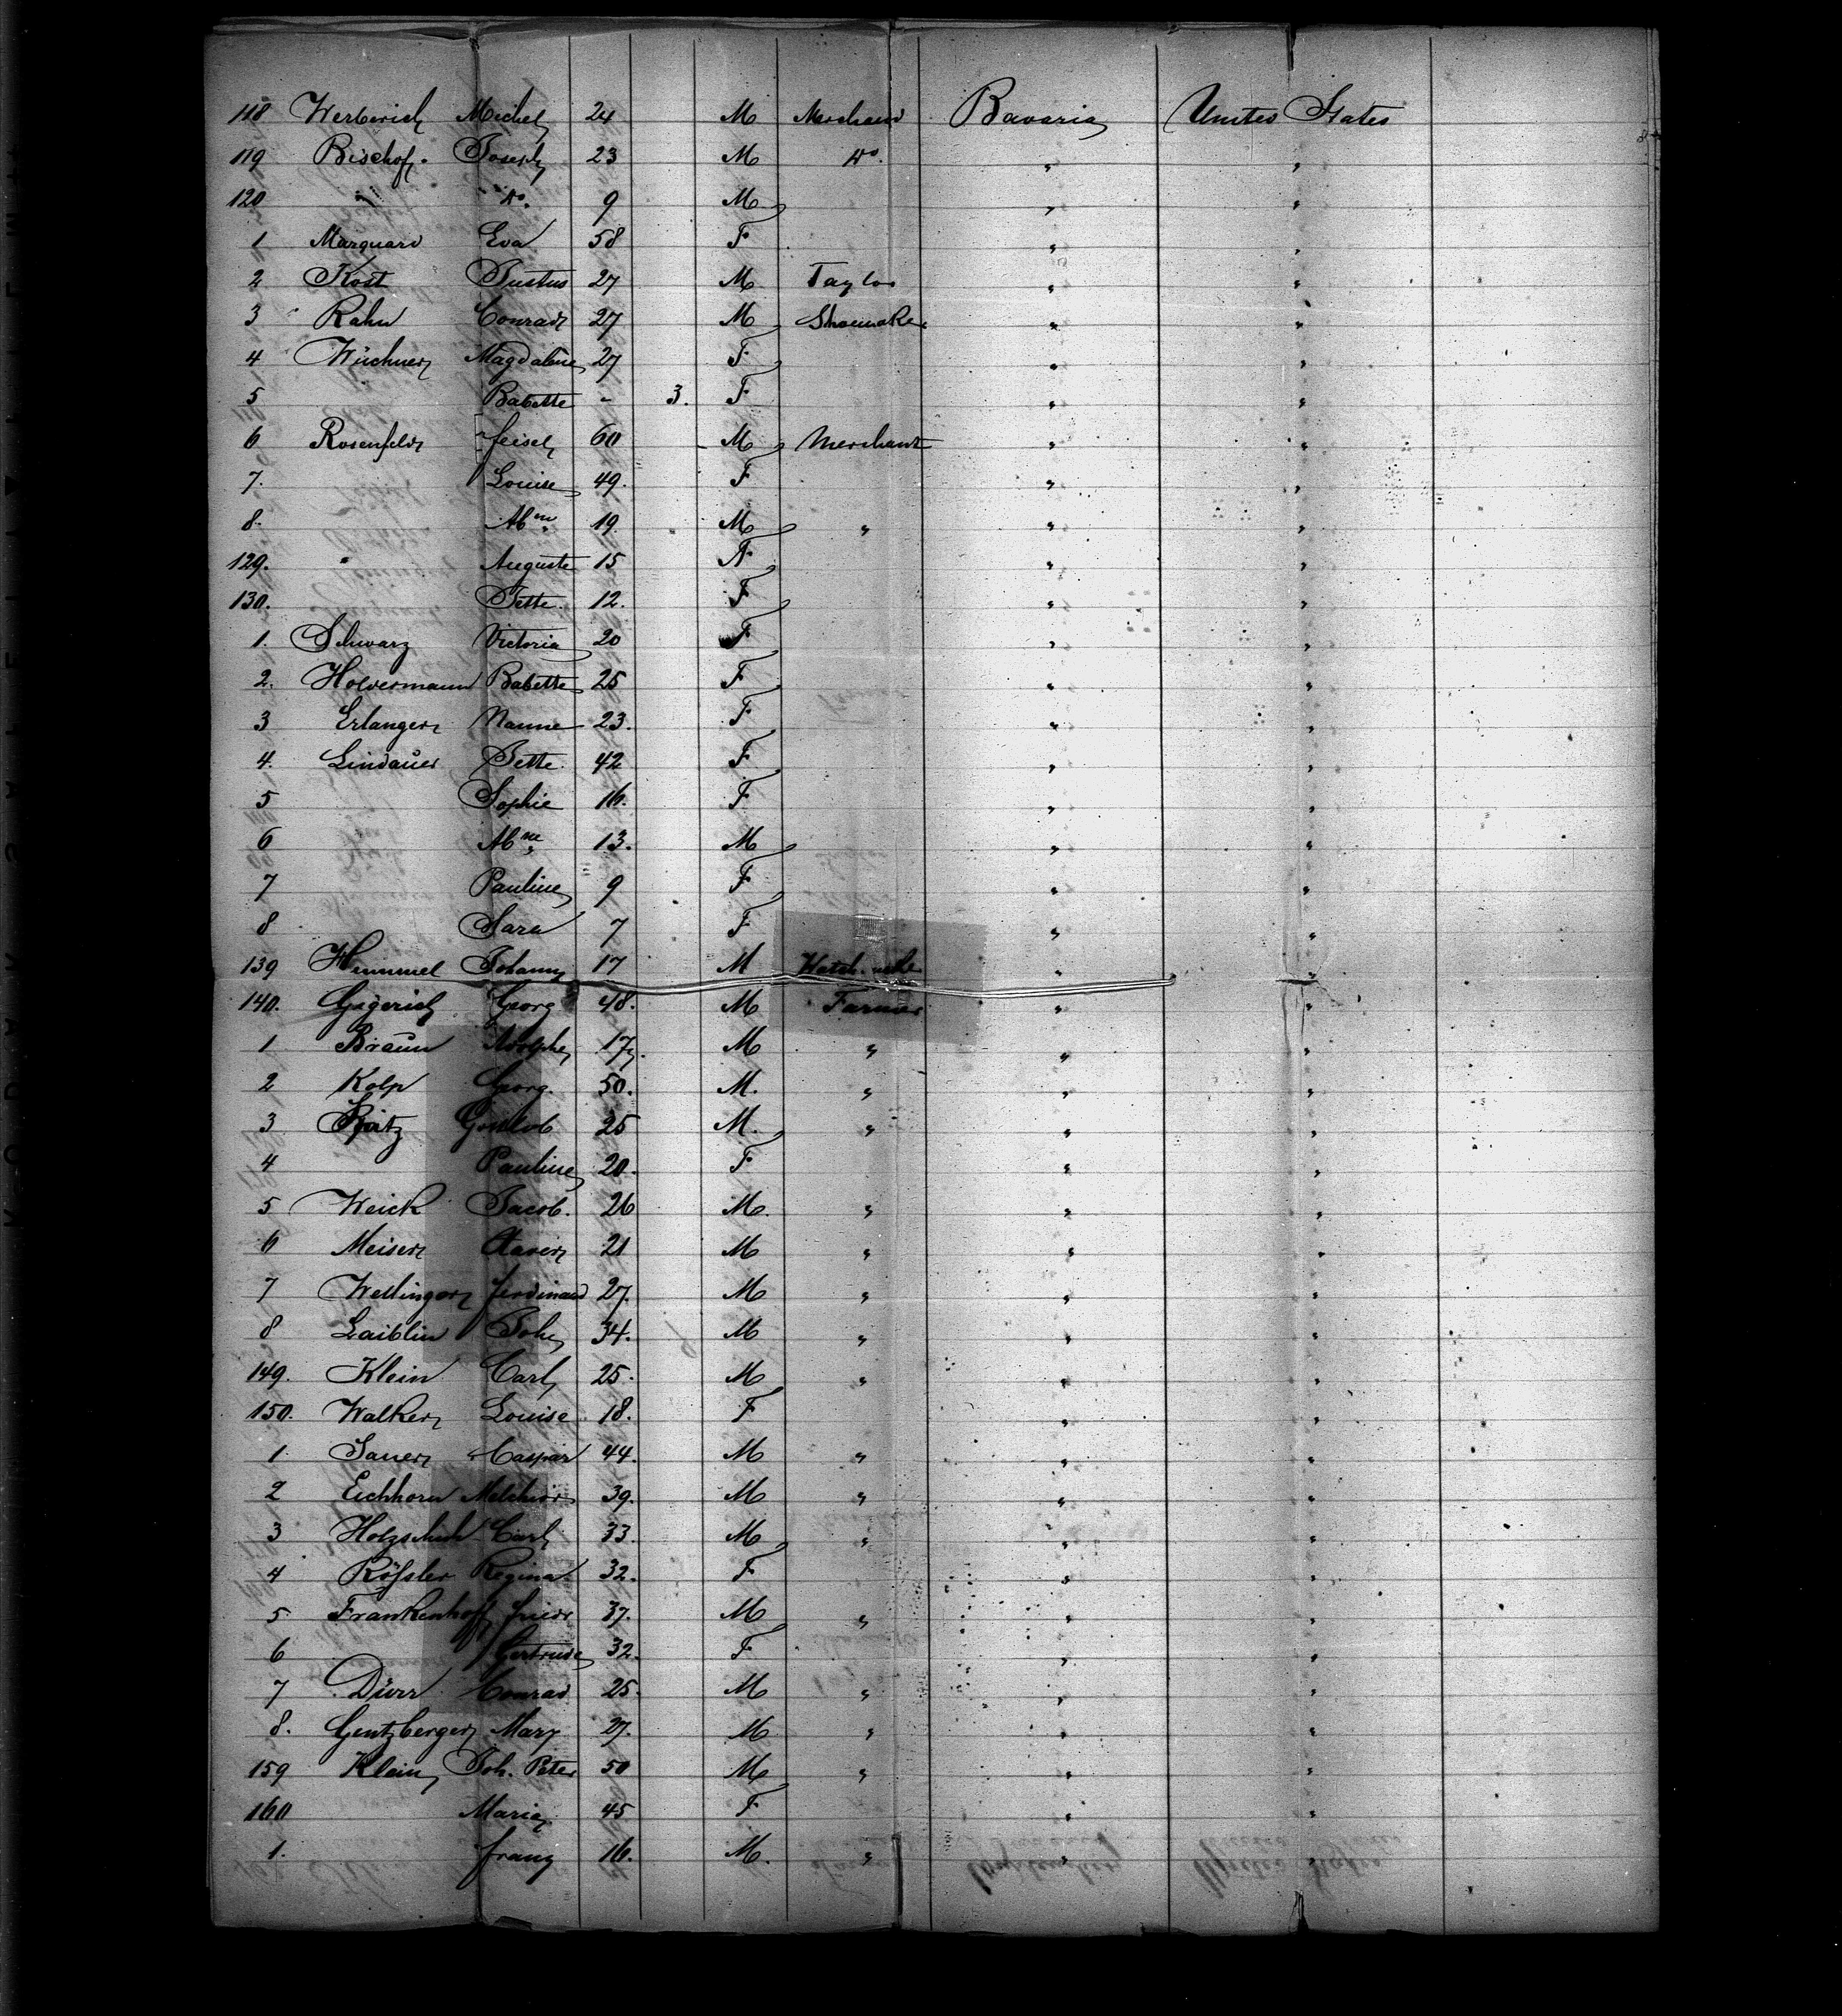 118 Werberich Michel 24 M Merchand Bavaria United States
119 Bischof. Joseph 23 M Do. " "
120 " Do. 9 M " "
1 Marquard Eva 58 F " "
2 Kost Justus 27 M Taylor " "
3 Rahn Conrad 27 M Shoemaker " "
4 Wüchner Magdalene 27 F " "
5 Babette - 3. F " "
6 Rosenfeld Feisel 60 M Merchant " "
7. Louise 49. F " "
8. Abm 19 M " " "
129. " Auguste 15 F " "
130. Jette. 12. F " "
1. Schwarz Victoria 20 F " "
2. Holdermann Babette 25 F " "
3 Erlanger Nanne 23. F " "
4. Lindauer Jette. 42 F " "
5 Sophie 16. F " "
6 Abm 13. M " "
7 Pauline 9 F " "
8 Sara 7 F " "
139 Hemmel Johann 17 M " "
140. Gegerich Georg 48. M Farmer " "
1 Braun Adolph 17 M " " "
2 Kolp Georg. 50. M. " " "
3 Gottlob 25 M. " " "
4 Pauline 20. F " "
5 Weick Jacob. 26 M. " " "
6 Meiser Xaver 21 M " " "
7 Wellinger Ferdinand 27. M " " "
8 Laiblin Joh 34. M " " "
149. Klein Carl 25. M " " "
150. Walker Louise 18. F " "
1. Sauer Caspar 44. M " " "
2 Eichhorn Melchior 39. M " " "
3 Holzschuh Carl 33. M " " "
4 Rößler Regina 32. F " "
5 Frankenhoff Friedr 37. M " " "
6 Gertrude 32. F " "
7 Dürr Conrad 25. M " " "
8. Gentzberger Marx 27. M " " "
159 Klein Joh. Peter 50 M " " "
160 Maria 45 F " "
1. Franz 16. M. " " "